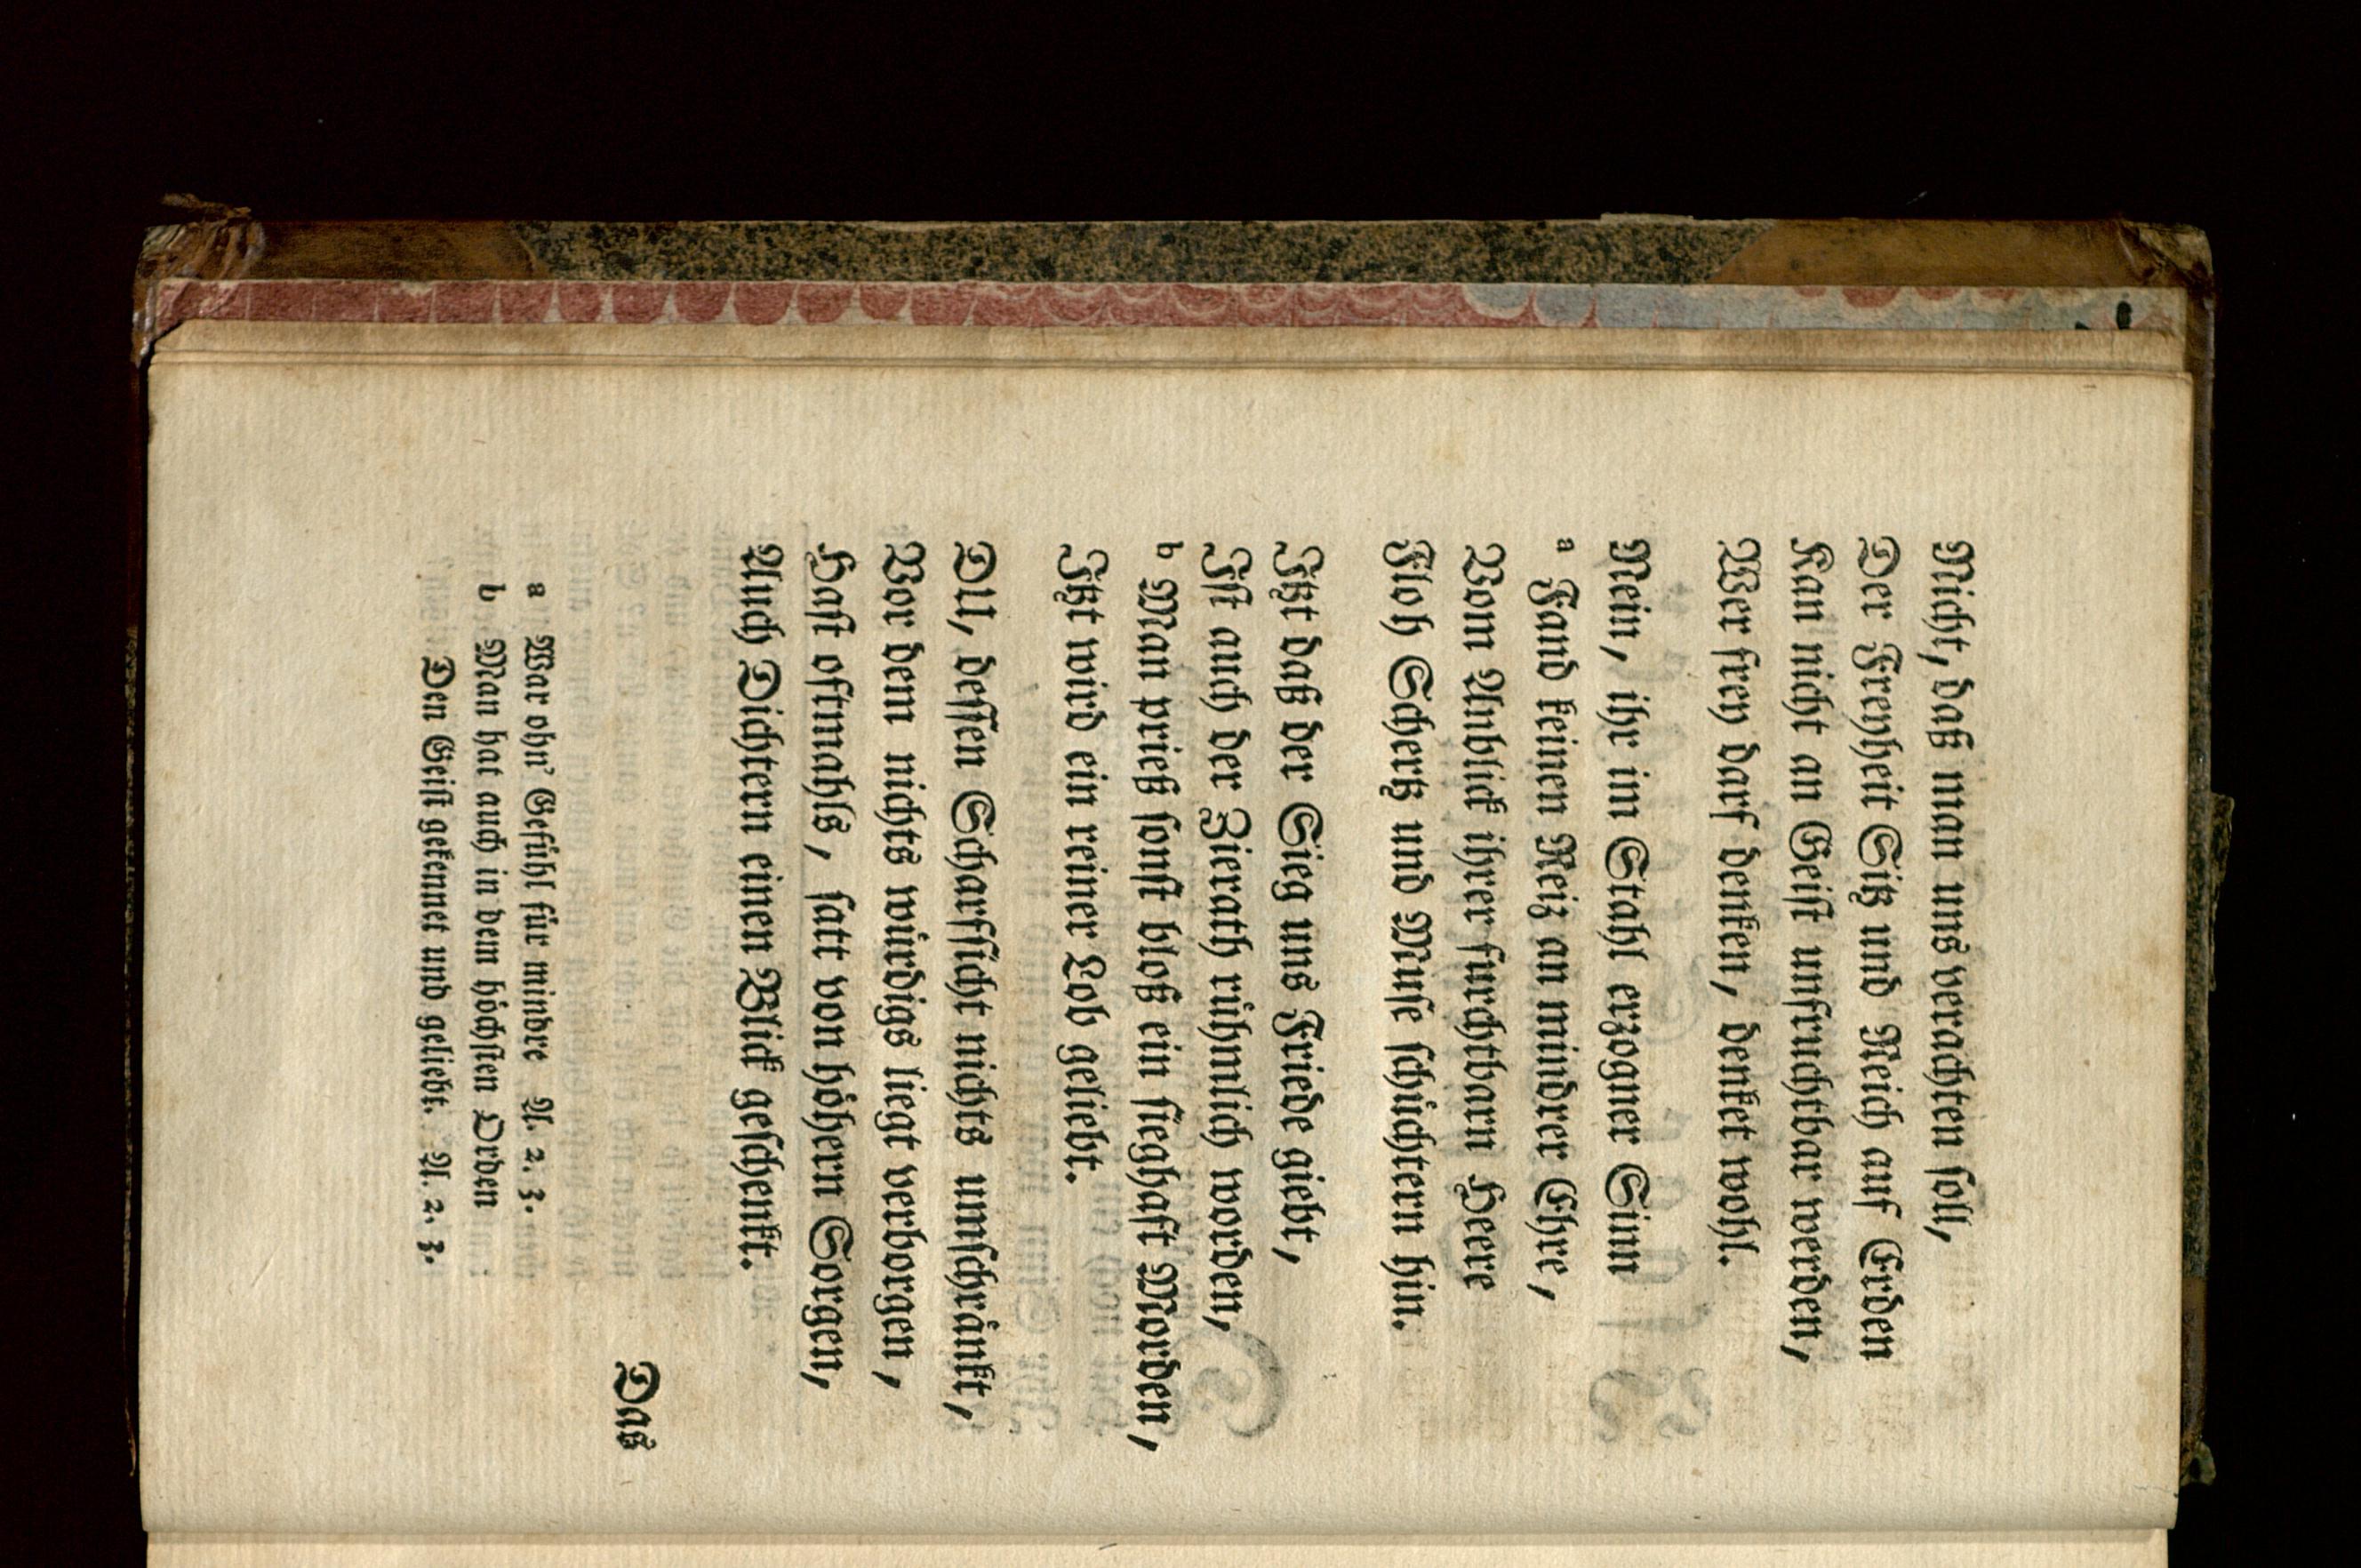 Nicht, daß man uns verachten soll,
Der Freyheit Sitz und Reich auf Erden
Kan nicht an Geist unfruchtbar werden,
Wer frey darf denken, denket wohl.
Nein, ihr im Stahl erzogner Sinn
a Fand keinen Reiz an mindrer Ehre,
Vom Anblick ihrer furchtbarn Heere
Floh Schertz und Muse schüchtern hin.
Itzt daß der Sieg uns Friede giebt,
Ist auch der Zierath rühmlich worden,
b Man prieß sonst bloß ein sieghaft Morden,
Itzt wird ein reiner Lob geliebt.
DU, dessen Scharfsicht nichts umschränkt,
Vor dem nichts würdigs liegt verborgen,
Hast oftmahls, satt von höhern Sorgen,
Auch Dichtern einen Blick geschenkt.
Das
a War ohn' Gefühl für mindre A. 2. 3.
b Man hat auch in dem höchsten Orden
Den Geist gekennet und geliebt. A. 2. 3.